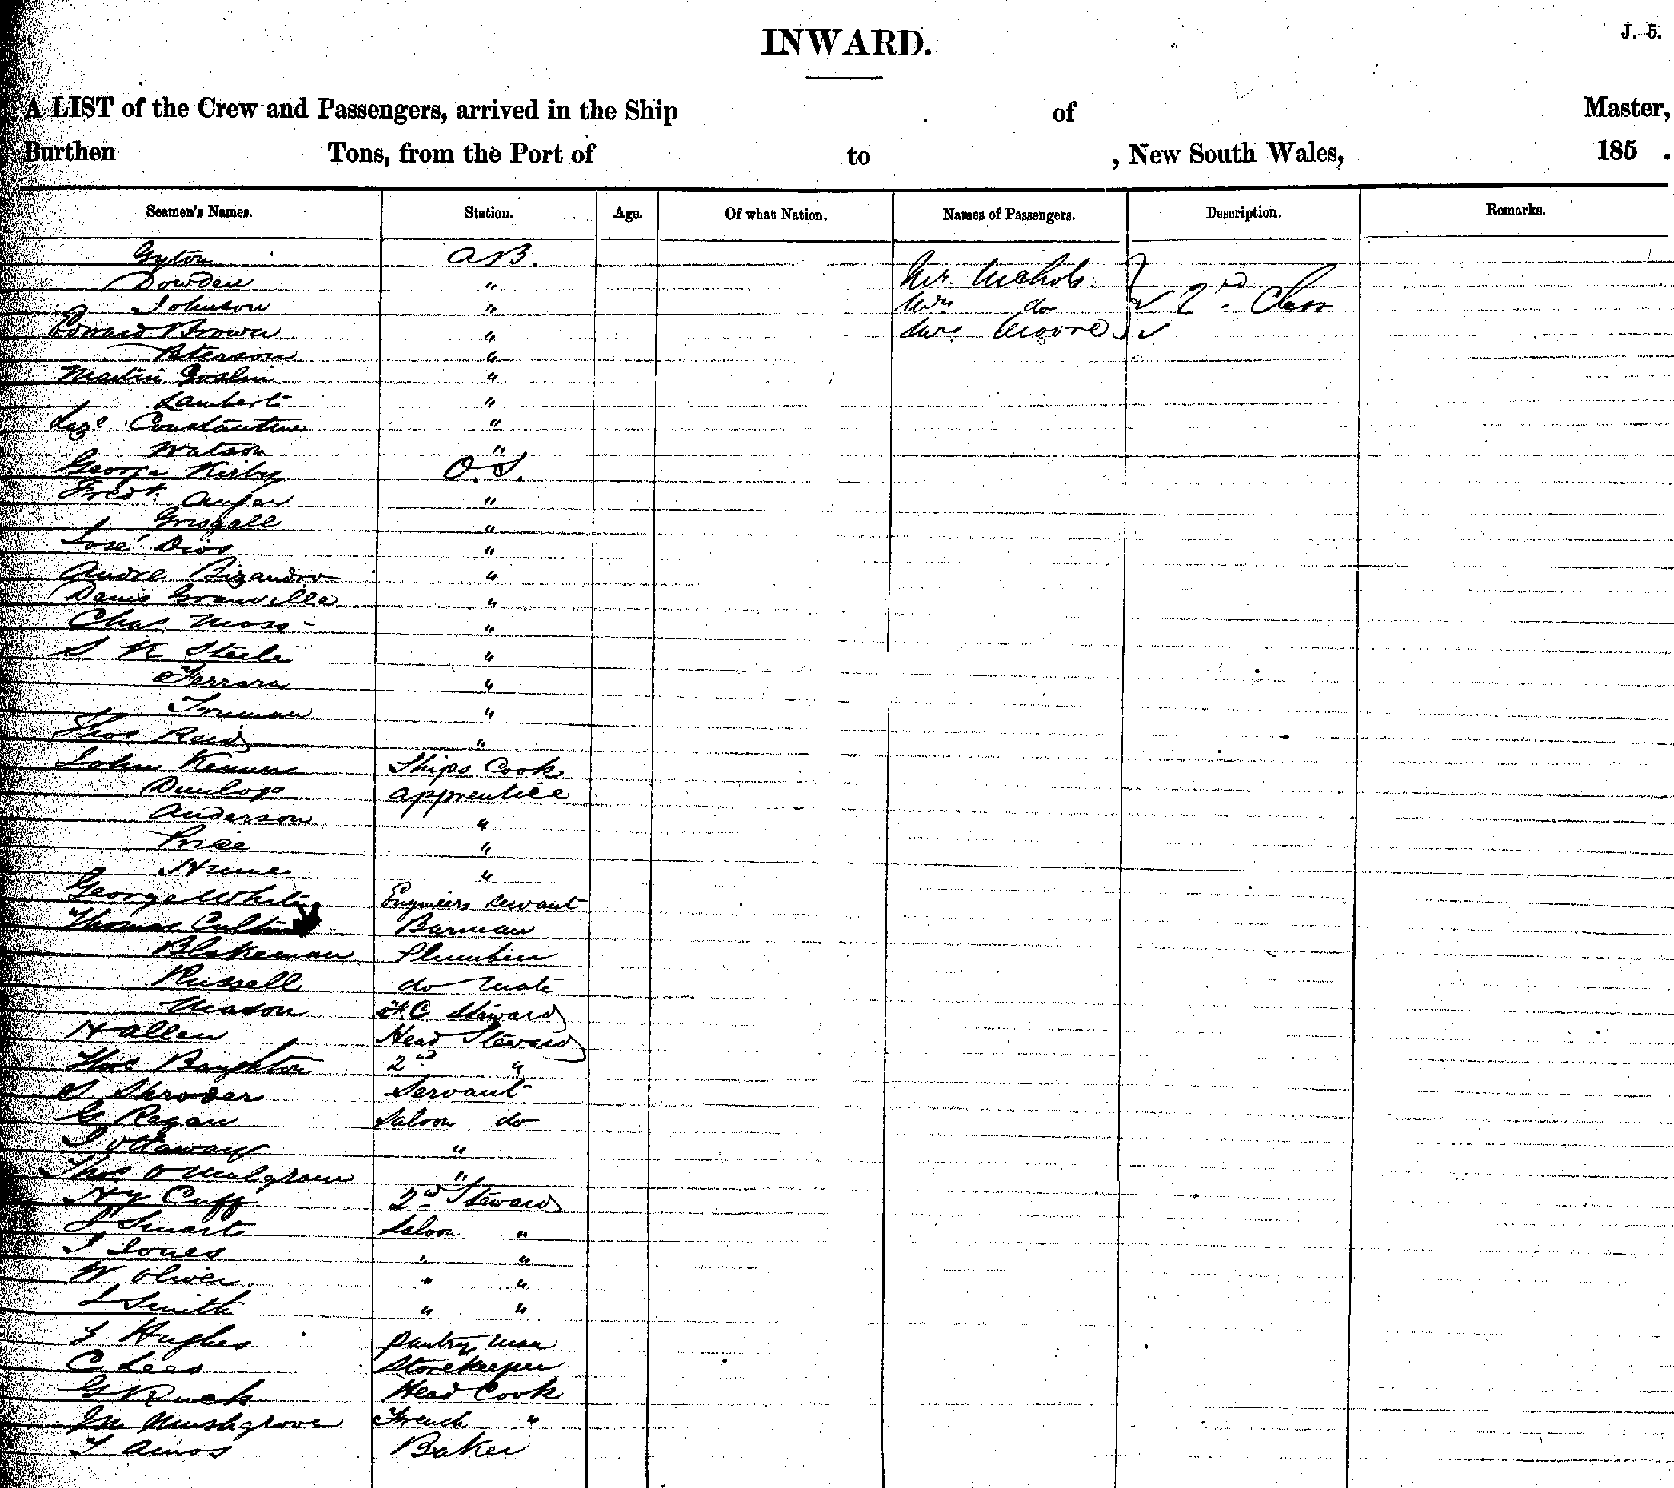 INWARD.
J. 5.
A LIST of the Crew and Passengers, arrived in the Ship of Master,
Burthen Tons, from the Port of to , New South Wales, 185 .
Seamen's Names. Station. Age. Of what Nation. Names of Passengers. Description. Remarks.
Gyton A.B.
Dowden " Mr. Nichols
Johnson " Mrs do 2nd Class
Edward Brown " Mrs Moore
Peterson "
Martin Goslin "
Lambert "
Constantine "
Watson "
George Kirby O.S.
Fredk "
"
José Dios "
André "
Granville "
Chas Moss "
S K Steele "
Ferrara "
Truman "
Thos Reid "
John Ships Cook
Dunlop apprentice
Anderson "
Price "
Hume "
George White Engineers Servant
Thomas Barman
Blakeman Plumber
Russell do Mate
Meason F.C Steward
H Allen Head Steward
Thos Boughton 2nd "
Shroder Servant
G Regan Saloon do
J Ottaway "
Thos "
Hy Cuff 2nd Steward
Smart Saloon "
J Jones " "
W Oliver " "
J Smith " "
Hughes Pantry man
C Lees Storekeeper
G Ruck Head Cook
Jn Mushgrove French "
Amos Baker